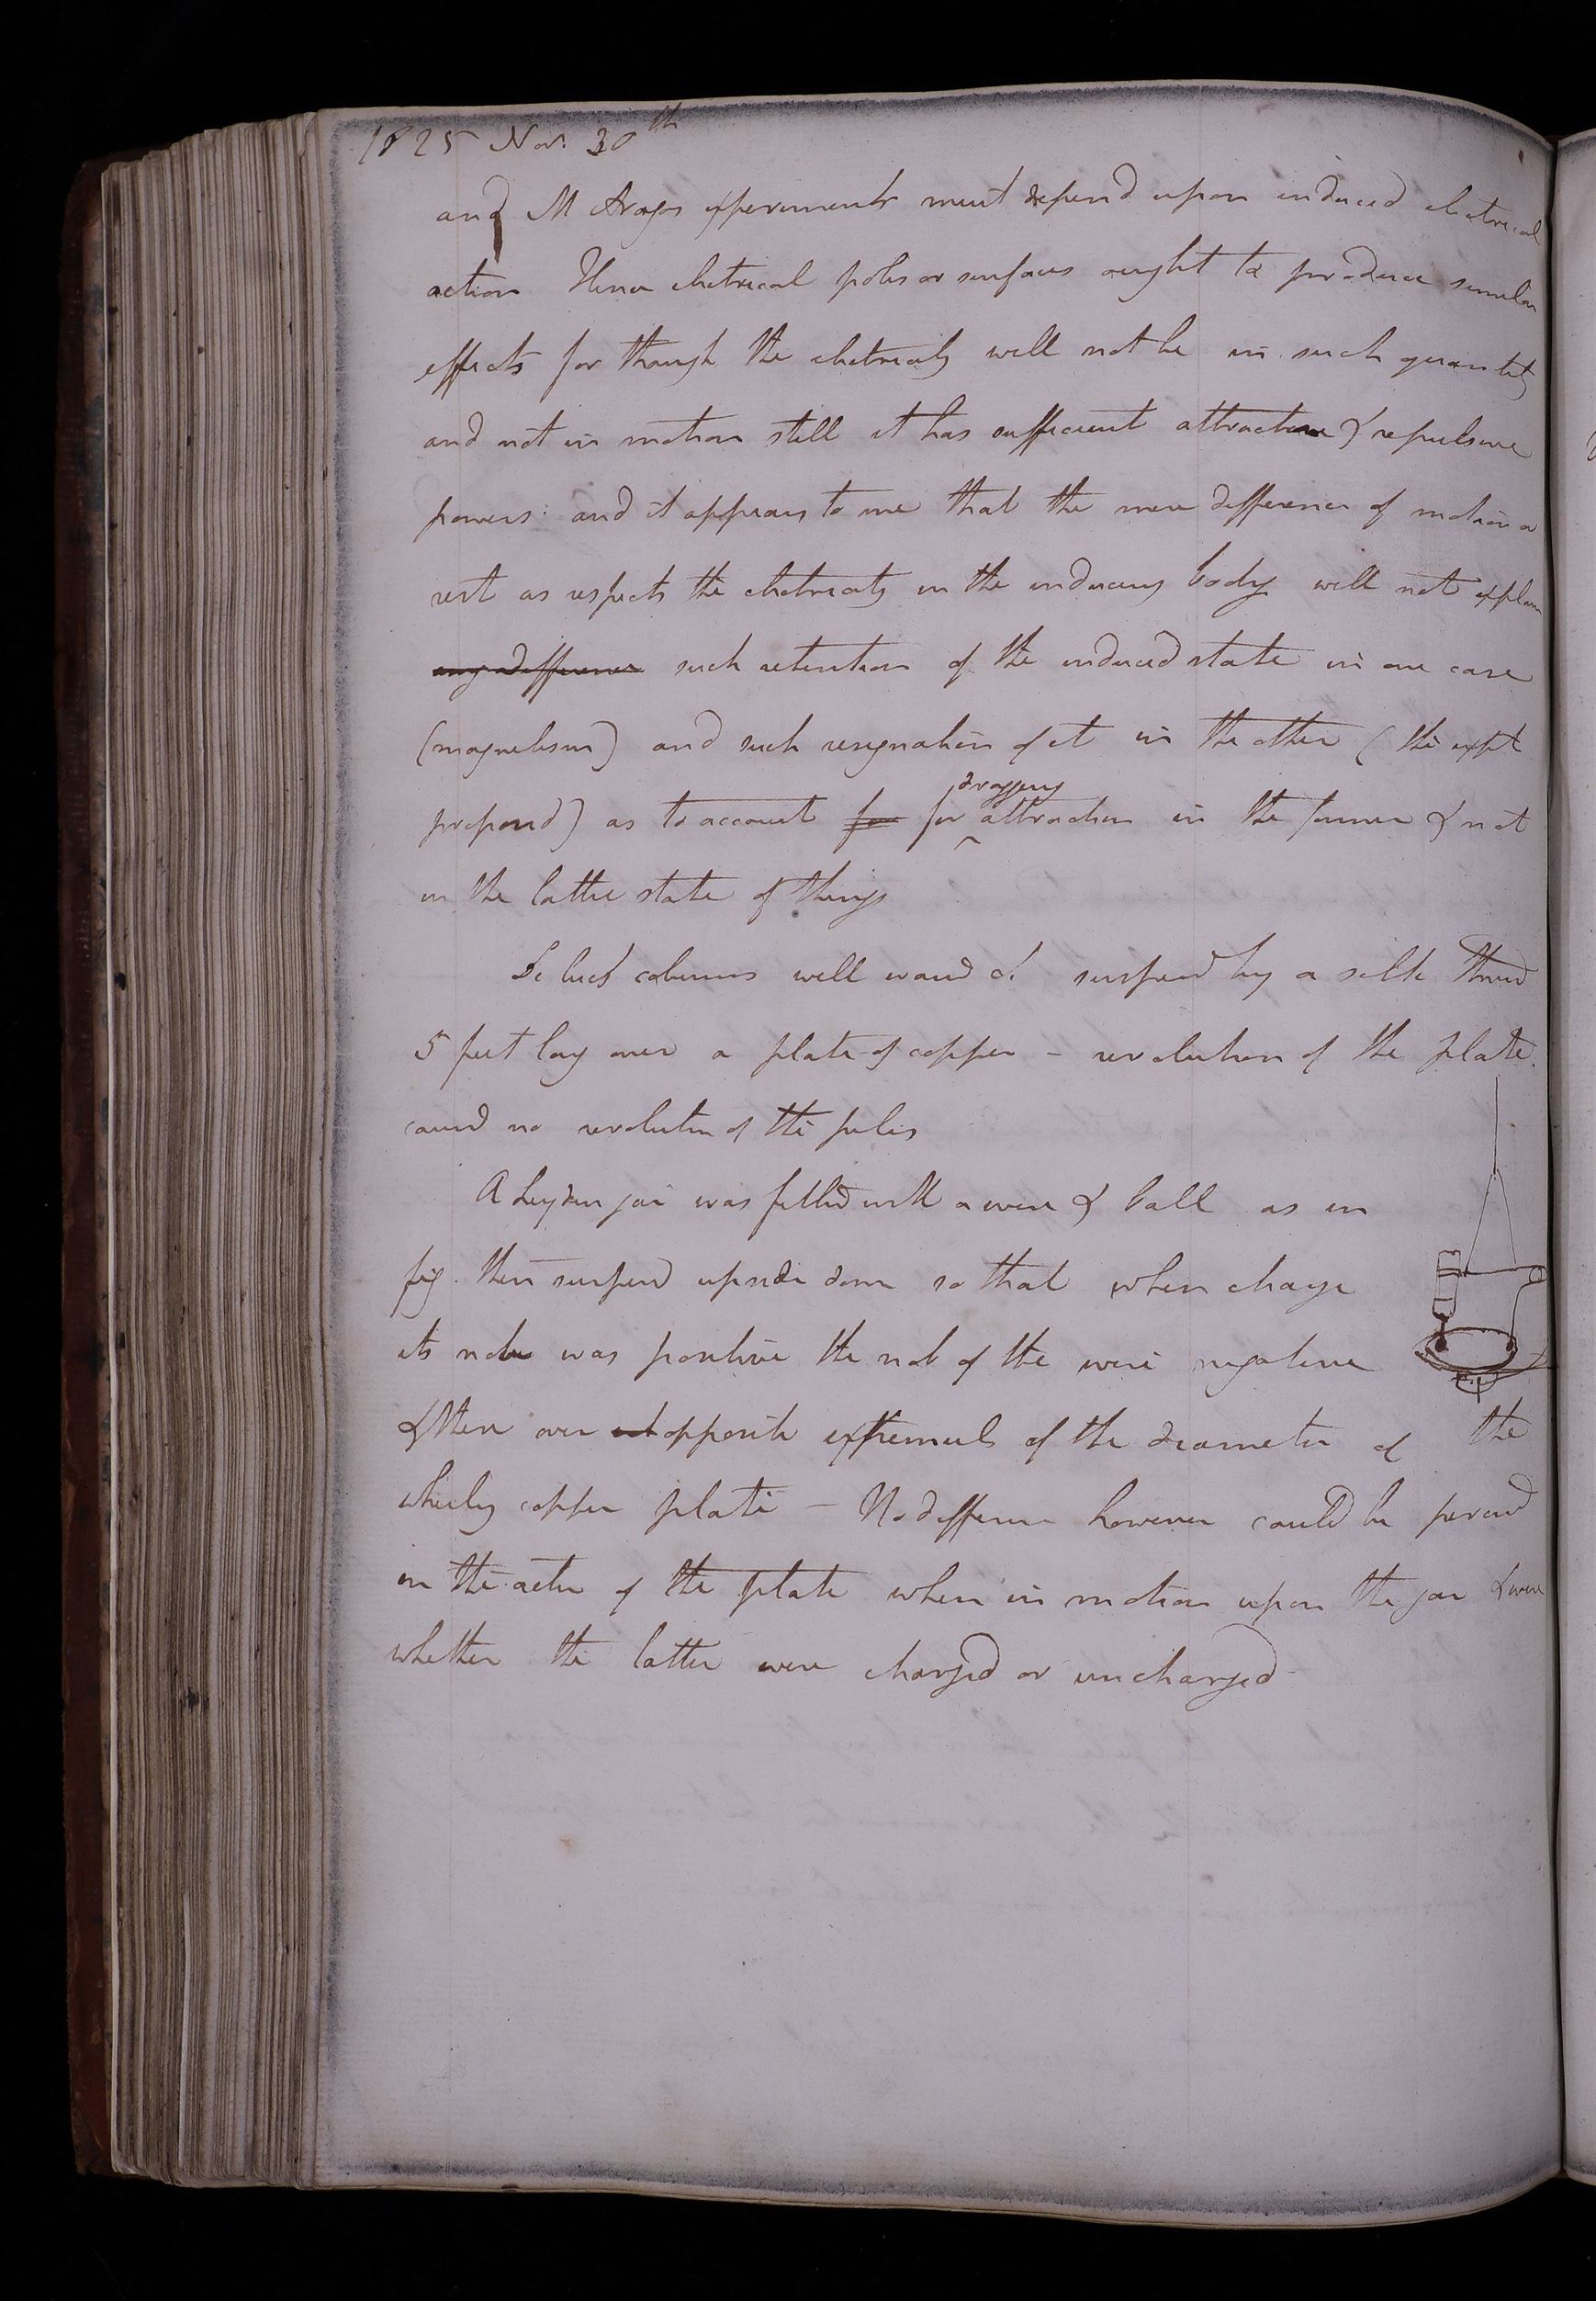 1825 Nov. 30th
and M Aragos experiments must depend upon induced electrical
action Hence electrical poles or surfaces ought to produce similar
effects for though the electricity will not be in such quantity
and not in motion still it has sufficient attractive & repulsive
powers: and it appears to me that the mere difference of motion or
rest as respects the electricity in the inducing body will not explain
any difference such retention of the induced state in one case
(magnetism) and such resignation of it in the other (the expt
dragging
proposed) as to account for for attraction in the former & not
in the latter state of things
De Lucs columns well suspend by a silk thread
5 feet long over a plate of copper - revolution of the plate
caused no revolution of the poles
A Leyden jar was fitted with a wire & ball as in
fig. then suspend upside down so that when charge
its was positive the nob of the wire negative
& these over opposite extremeties of the diameter of the
wheeling copper plate - No difference however could be perceived
in the action of the plate when in motion upon the jar & wire
whether the latter were charged or uncharged